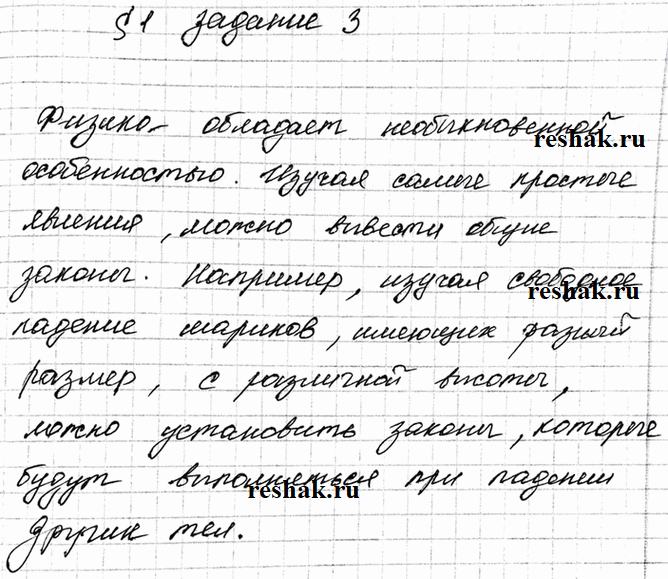 §1 задание 3
Физика обладает необыкновенной
reshak.ru
особенностью. Изучая самые простые
явления, можно вывести общие
законы. Например, изучая свободное
reshak.ru
падение шариков, имеющих разный
размер, с различной высоты,
можно установить законы, которые
будут выполняться при падении
reshak.ru
других тел.